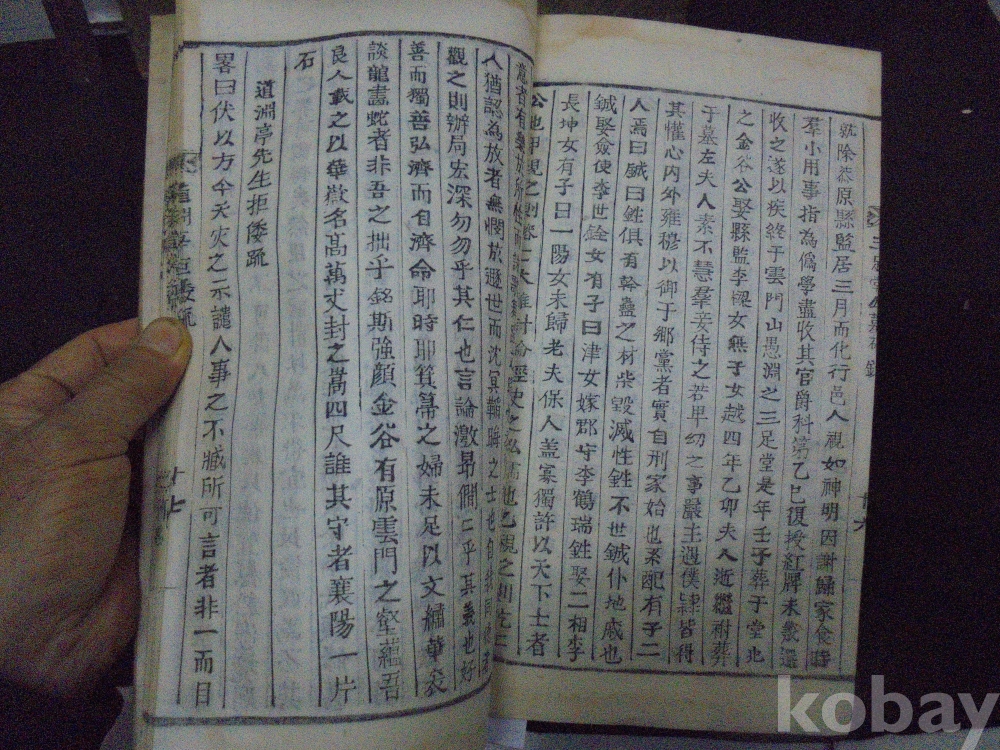 就除漆原縣監居三月而化行邑人視如神明因謝歸家食時
羣小用事指為僞學盡收其官爵科第乙巳復授紅牌未幾還
收之遂以疾終于雲門山愚淵之三足堂是年壬子葬于堂北
之金谷公娶縣監李樑女無子女越四年乙卯夫人逝繼祔葬
于墓左夫人素不慧羣妾侍之若甲幼之事嚴主過僕隷皆得
其懽心內外雍穆以御于鄉黨者實自刑家始也系配有子二
人焉曰鋮曰鉎俱有幹蠱之材柴毀滅性鉎不世鋮仆地戚也
鋮娶僉使李世銓女有子曰津女嫁郡守李鶴瑞鉎娶二相李
長坤女有子曰一陽女未歸老夫保人盖寡獨許以天下士者
公也甲視之則
人猶認為放者無憫放遯世而沈冥
觀之則辦局宏深勿勿乎其仁也言論激昻僩僩乎其義也好
善而獨善弘濟而自濟命耶時耶簣篿之婦未足以文繡華衮
談龍畫蛇者非吾之拙乎銘斯強顏金谷有原雲門之壑蘊吾
良人韱之以華徽名高萬丈封之嵩四尺誰其守者襄陽一片
石
道淵亭先生拒倭疏
畧曰伏以方今天灾之示譴人事之不臧所可言者非一而目
道淵亭拒倭疏
十七
十六
kobay